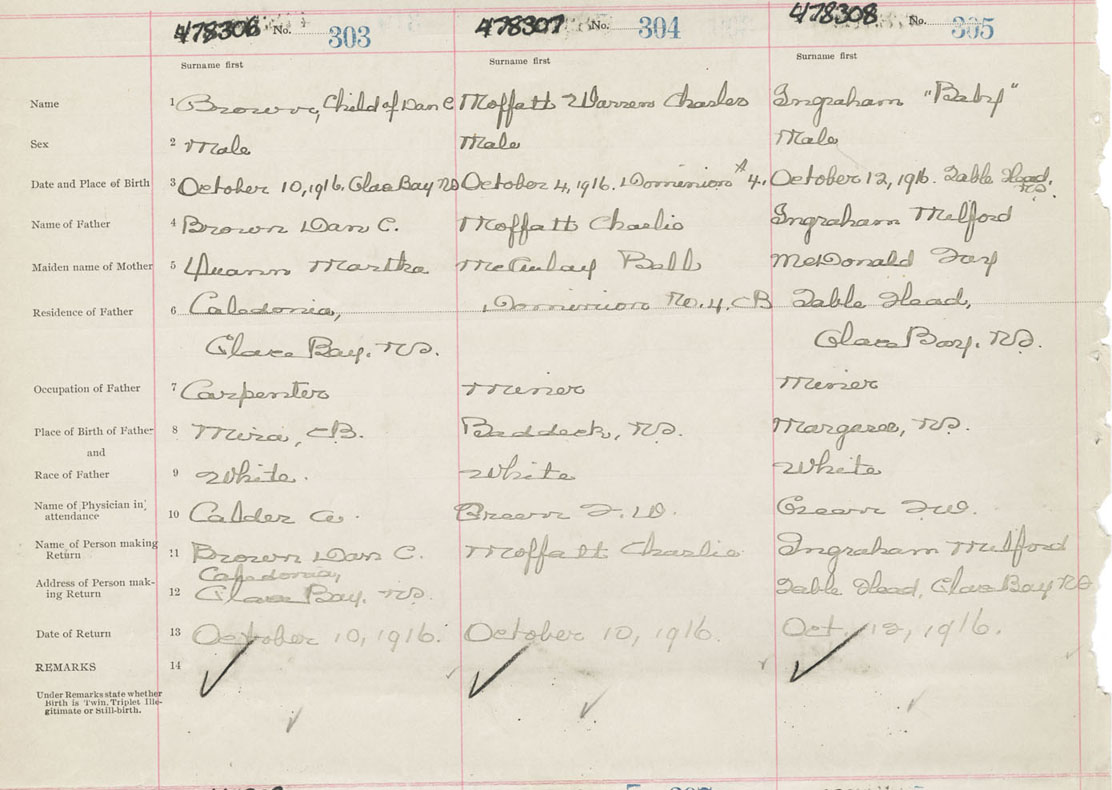 478306 No. 303 478307 No. 304 478308 No. 305
Surname first Surname first Surname first
Name 1 Brown, Child of Dan C Moffatt Warren Charles Ingraham "Baby"
Sex 2 Male Male Male
Date and Place of Birth 3 October 10, 1916. Glace Bay NS October 4, 1916. Dominion # 4. October 12, 1916. Table Head, NS.
Name of Father 4 Brown Dan C. Moffatt Charlie Ingraham Melford
Maiden name of Mother 5 Martha McAulay Bell McDonald
Residence of Father 6 Caledonia, Dominion No. 4. CB Table Head,
Glace Bay. NS. Glace Bay. NS.
Occupation of Father 7 Carpenter Miner Miner
Place of Birth of Father 8 Mira, CB. Baddeck, NS. Margaree, NS.
and
Race of Father 9 White. White White
Name of Physician in
attendance 10 Calder Green Green F.W.
Name of Person making
Return 11 Brown Dan C. Moffatt Charlie Ingraham Melford
Address of Person mak-
ing Return 12 Caledonia, Table Head, Glace Bay NS
Glace Bay. NS.
Date of Return 13 October 10, 1916. October 10, 1916. Oct 12, 1916.
REMARKS 14
Under Remarks state whether
Birth is Twin, Triplet Ille-
gitimate or Still-birth.